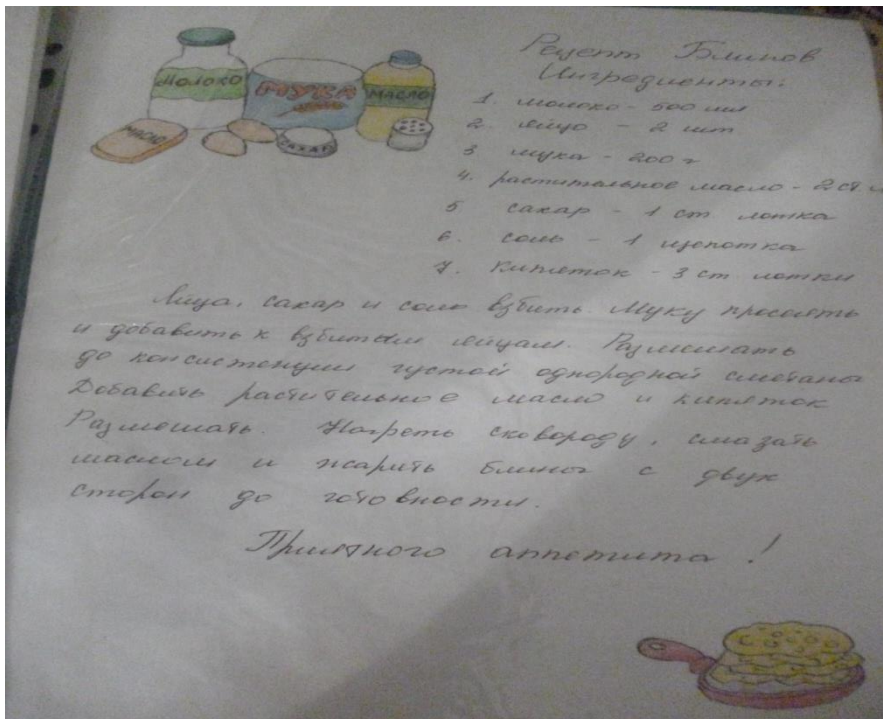 Рецепт Блинов
Ингредиенты:
1. молоко - 500 мл
2. яйцо - 2 шт
3 мука - 200 г
4. растительное масло - 2 ст. л
5 сахар - 1 ст. ложка
6. соль - 1 щепотка
7. кипяток - 3 ст. ложки
Яйца, сахар и соль взбить. Муку просеять
и добавить к взбитым яйцам. Размешать
до консистенции густой однородной сметаны
Добавить растительное масло и кипяток
Размешать. Нагреть сковороду, смазать
маслом и жарить блины с двух
сторон до готовности.
Приятного аппетита!
МОЛОКО
МУКА
МАСЛО
МАСЛО
САХАР